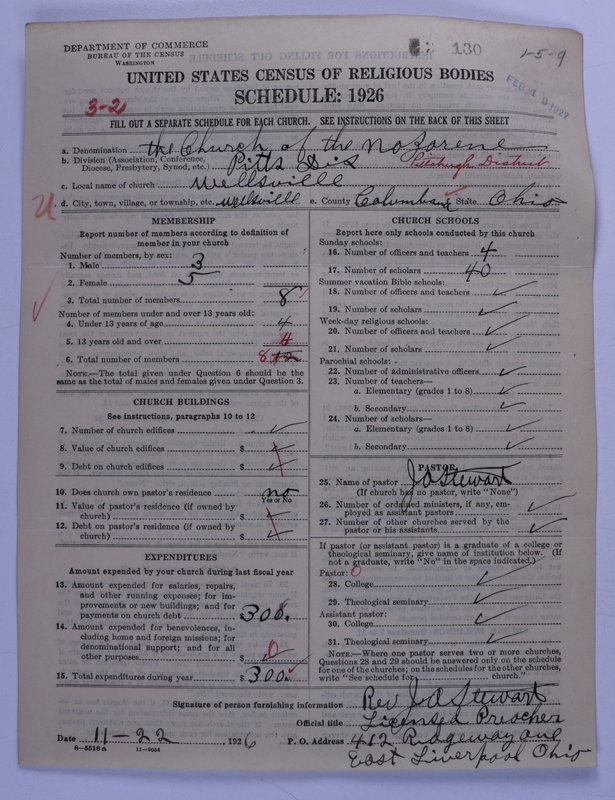 DEPARTMENT OF COMMERCE
BUREAU OF THE CENSUS
WASHINGTON
130
1-5-9
UNITED STATES CENSUS OF RELIGIOUS BODIES
SCHEDULE: 1926
FEB 1927
3-2
FILL OUT A SEPARATE SCHEDULE FOR EACH CHURCH. SEE INSTRUCTIONS ON THE BACK OF THIS SHEET
a. Denomination the Church of the Nazarene
b. Division (Association, Conference, Diocese, Presbytery, Synod, etc.) Pitts Dis Pittsburgh District
c. Local name of church Wellsville
d. City, town, village, or township, etc. Wellsville e. County Columbiana State Ohio
MEMBERSHIP
Report number of members according to definition of
member in your church
Number of members, by sex:
1. Male 3
2. Female 5
3. Total number of members 8
Number of members under and over 13 years old:
4. Under 13 years of age 4
5. 13 years old and over 4
6. Total number of members 8 12
NOTE.—The total given under Question 6 should be the
same as the total of males and females given under Question 3.
CHURCH BUILDINGS
See instructions, paragraphs 10 to 12
7. Number of church edifices
8. Value of church edifices $
9. Debt on church edifices $
10. Does church own pastor's residence no
Yes or No
11. Value of pastor's residence (if owned by
church) $
12. Debt on pastor's residence (if owned by
church) $
EXPENDITURES
Amount expended by your church during last fiscal year
13. Amount expended for salaries, repairs,
and other running expenses; for im-
provements or new buildings; and for
payments on church debt 300.
14. Amount expended for benevolences, in-
cluding home and foreign missions; for
denominational support; and for all
other purposes $ 0
15. Total expenditures during year $ 300.
CHURCH SCHOOLS
Report here only schools conducted by this church
Sunday schools:
16. Number of officers and teachers 4
17. Number of scholars 40
Summer vacation Bible schools:
18. Number of officers and teachers
19. Number of scholars
Week-day religious schools:
20. Number of officers and teachers
21. Number of scholars
Parochial schools:
22. Number of administrative officers
23. Number of teachers—
a. Elementary (grades 1 to 8)
b. Secondary
24. Number of scholars—
a. Elementary (grades 1 to 8)
b. Secondary
PASTOR
25. Name of pastor J A Stewart
(If church has no pastor, write "None")
26. Number of ordained ministers, if any, em-
ployed as assistant pastors
27. Number of other churches served by the
pastor or his assistants
If pastor (or assistant pastor) is a graduate of a college or
theological seminary, give name of institution below. (If
not a graduate, write "No" in the space indicated.)
Pastor: 0
28. College
29. Theological seminary
Assistant pastor:
30. College
31. Theological seminary
NOTE.—Where one pastor serves two or more churches,
Questions 28 and 29 should be answered only on the schedule
for one of the churches; on the schedules for the other churches,
write "See schedule for church."
Signature of person furnishing information Rev J A Stewart
Official title Licensed Preacher
Date 11-22, 1926 P. O. Address 412 Ridgeway ave
8-5518a 11-9034
East Liverpool Ohio